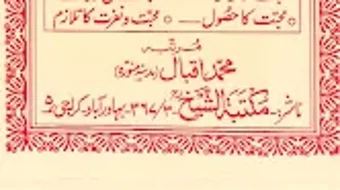 ۰ محبت کا حصول — ۰ محبت و نفرت کا تلازم
مرتب
محمد اقبال (مدینہ منورہ)
ناشر:۔ مکتبۃ الشیخ ۳/۳۶۷۔ بہادر آباد کراچی ۵